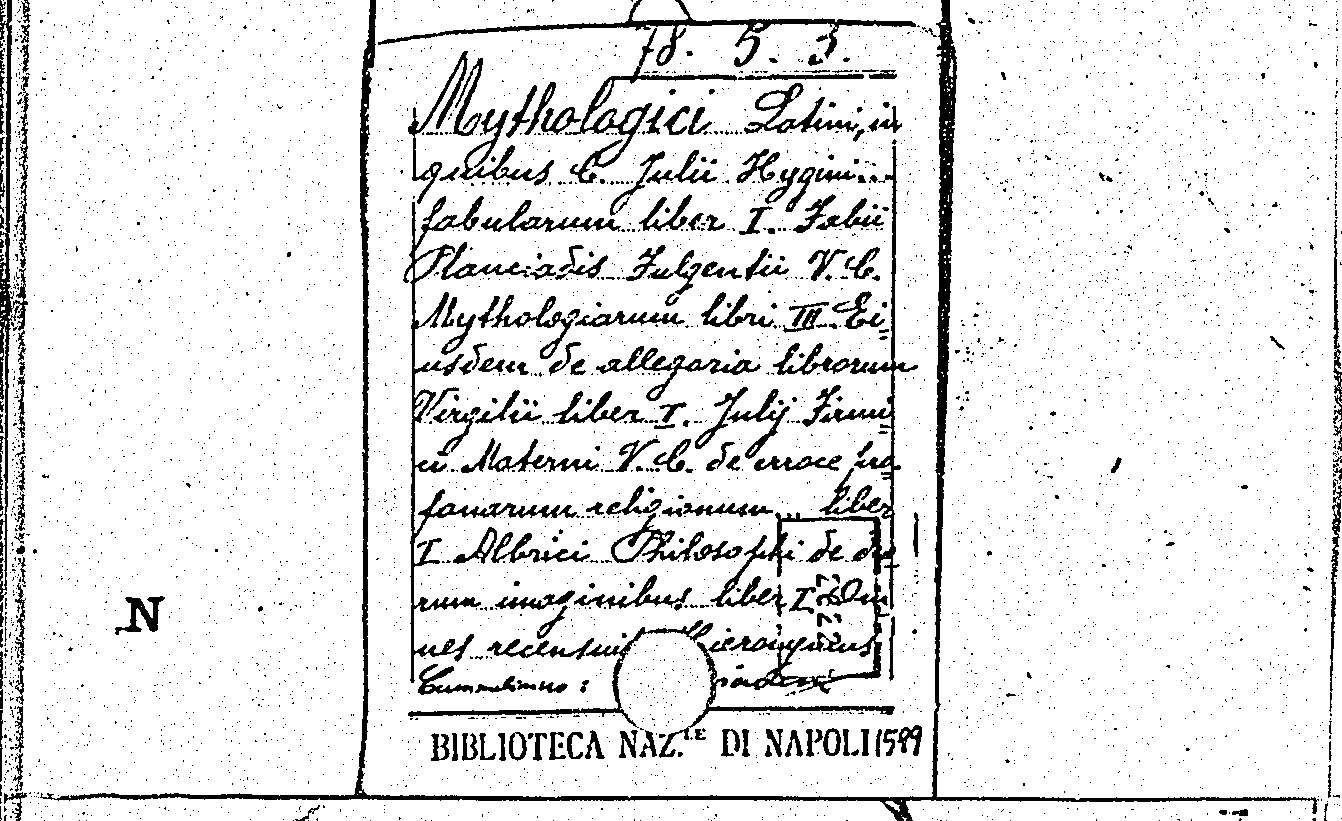 78. 5. 3.
Mythologici Latini, in
quibus C. Julii Hygini...
fabularum liber I. Fabii
Planciadis Fulgentii V. C.
Mythologiarum libri III. Ei=
usdem de allegoria librorum
Virgilii liber I. Julij Firmi=
ci Materni V. C. de errore pro=
fanarum religionum... liber
I Albrici Philosophi de deo=
rum imaginibus liber I Om=
nes recensuit Hieronymus
BIBLIOTECA NAZ.LE DI NAPOLI 1589
N